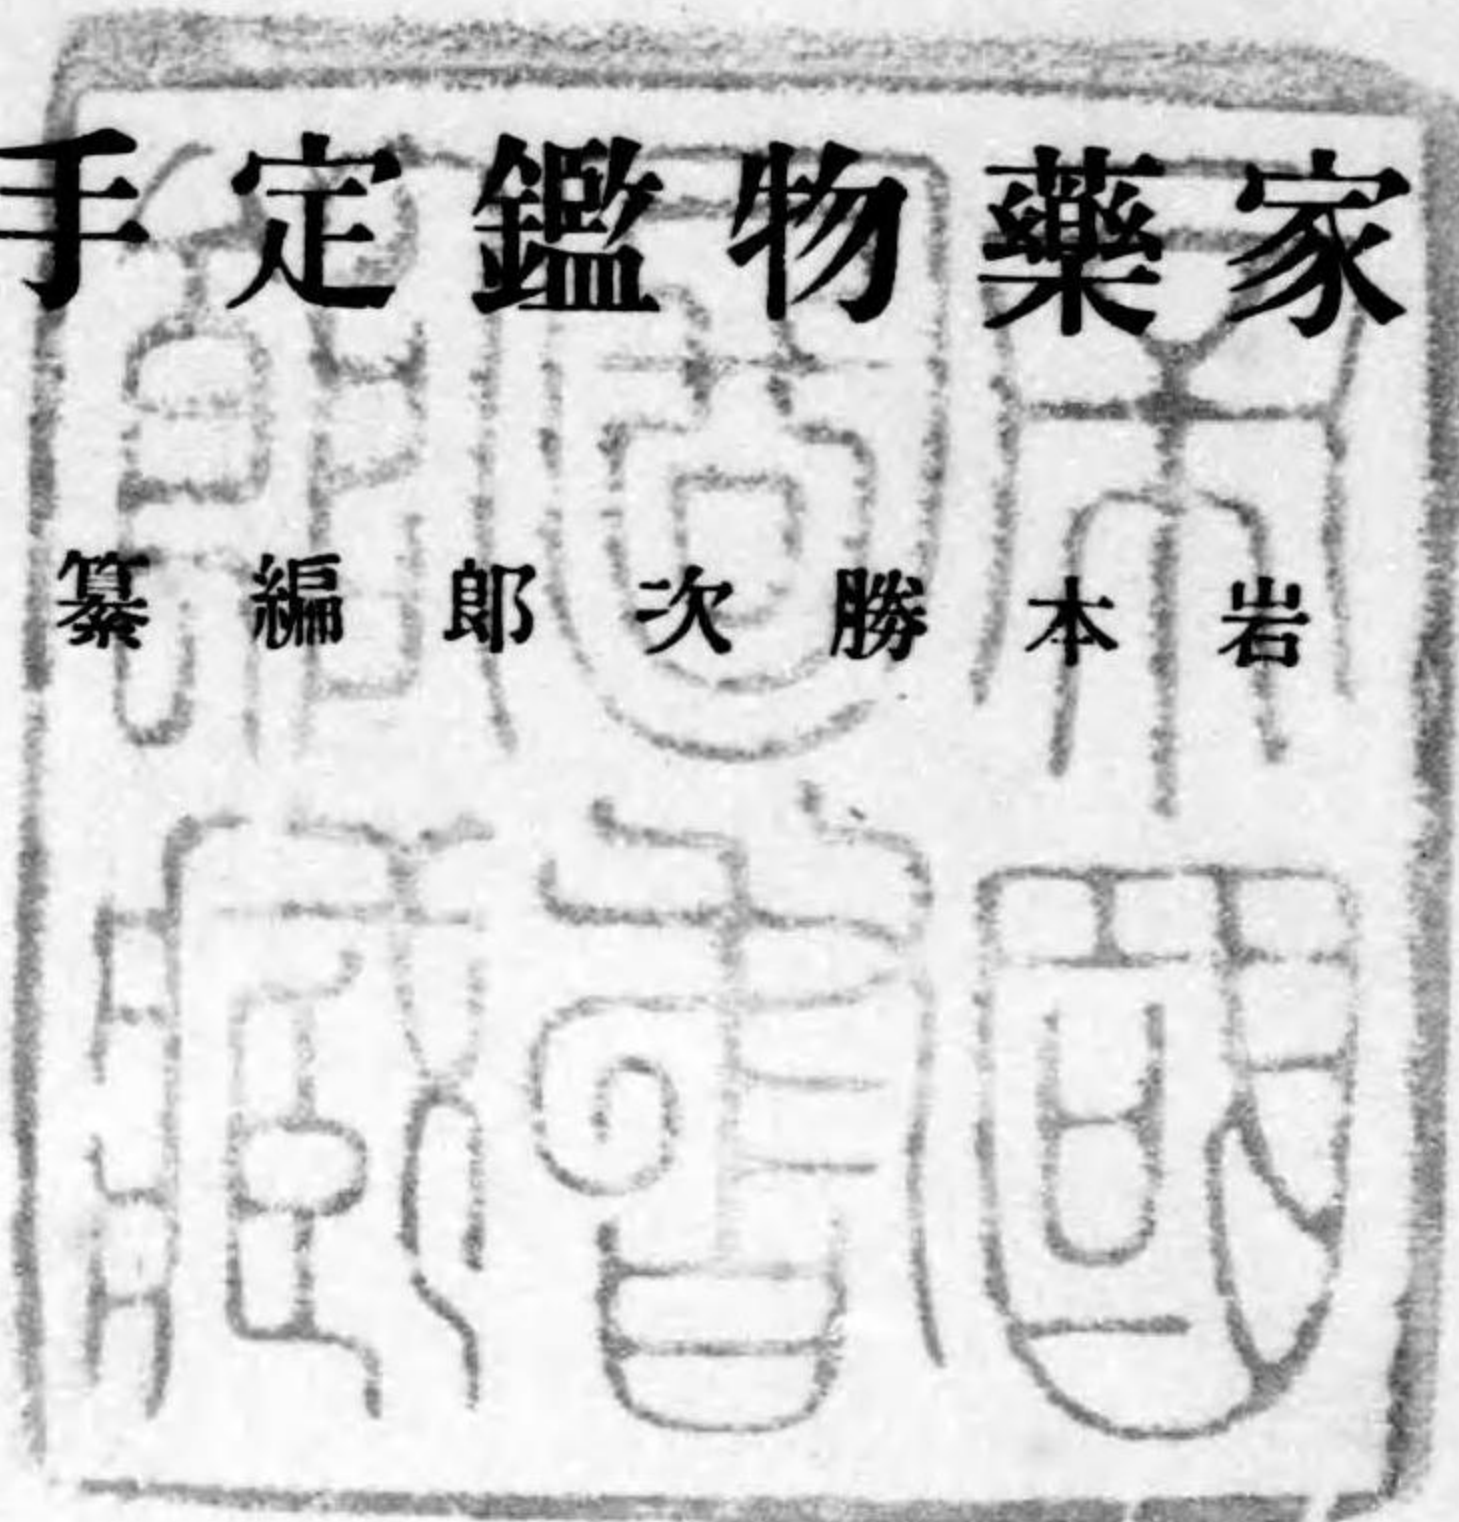 家藥物鑑定手
岩本勝次郎編纂
帝國
圖書
館藏